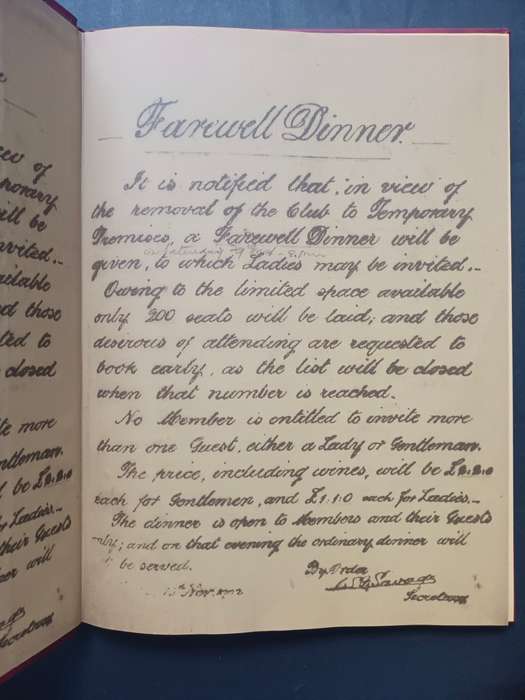 ew of
porary
ill be
nvited._
ailable
nd those
ted to
closed
te more
ntleman.
be £2.2.0
Ladies._
their Guests
inner will
Secretary
Farewell Dinner.
It is notified that, in view of
the removal of the Club to Temporary
Premises, a Farewell Dinner will be
on Saturday
given, to which Ladies may be invited._
Owing to the limited space available
only 200 seats will be laid; and those
desirous of attending are requested to
book early, as the list will be closed
when that number is reached.
No Member is entitled to invite more
than one Guest, either a Lady or Gentleman.
The price, including wines, will be £2.2.0
each for Gentlemen, and £1.1.0 each for Ladies._
The dinner is open to Members and their Guests
only; and on that evening the ordinary dinner will
be served.
By Order
Nov.
Secretary